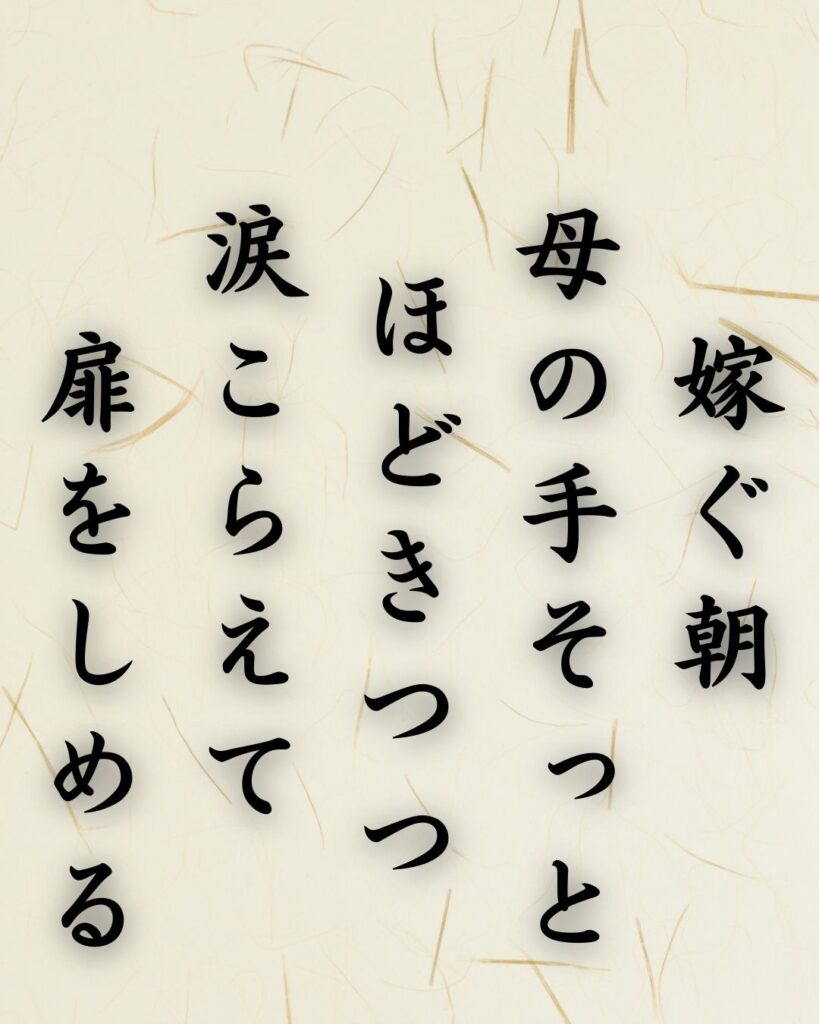 嫁ぐ朝
母の手そっと
ほどきつつ
涙こらえて
扉をしめる